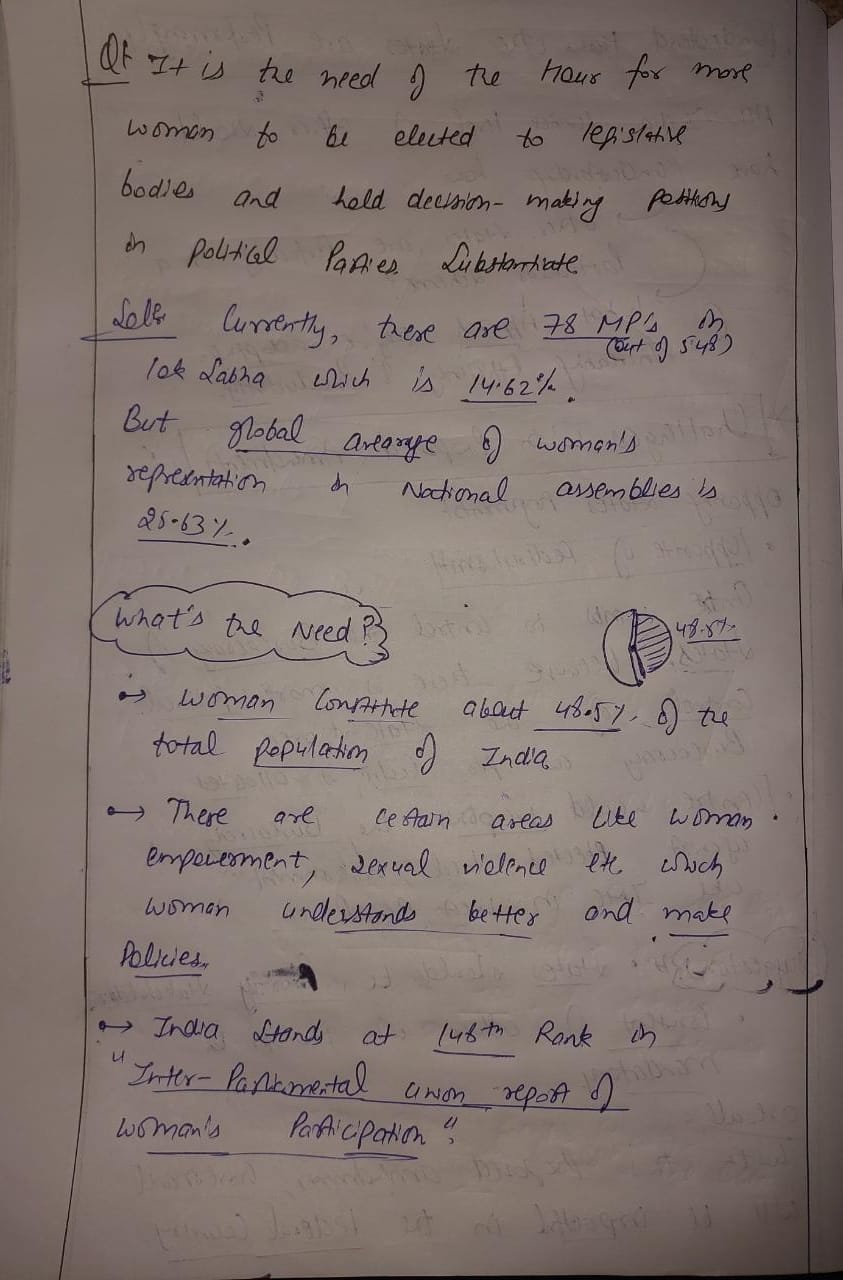 Q1 It is the need of the Hour for more
woman to be elected to legislative
bodies and hold decision-making positions
in Political Parties. Substantiate
Sol:- Currently, there are 78 MP's in
(out of 548)
lok Sabha which is 14.62%.
But global avearage of woman's
representation in National assemblies is
25.63%.
What's the Need?
48.5%
→ woman constitute about 48.5% of the
total population of India
→ There are certain areas like woman
empowerment, sexual violence etc which
woman understands better and make
Policies.
→ India stands at 148th Rank in
"Inter-Parliamental union report of
woman's Participation".